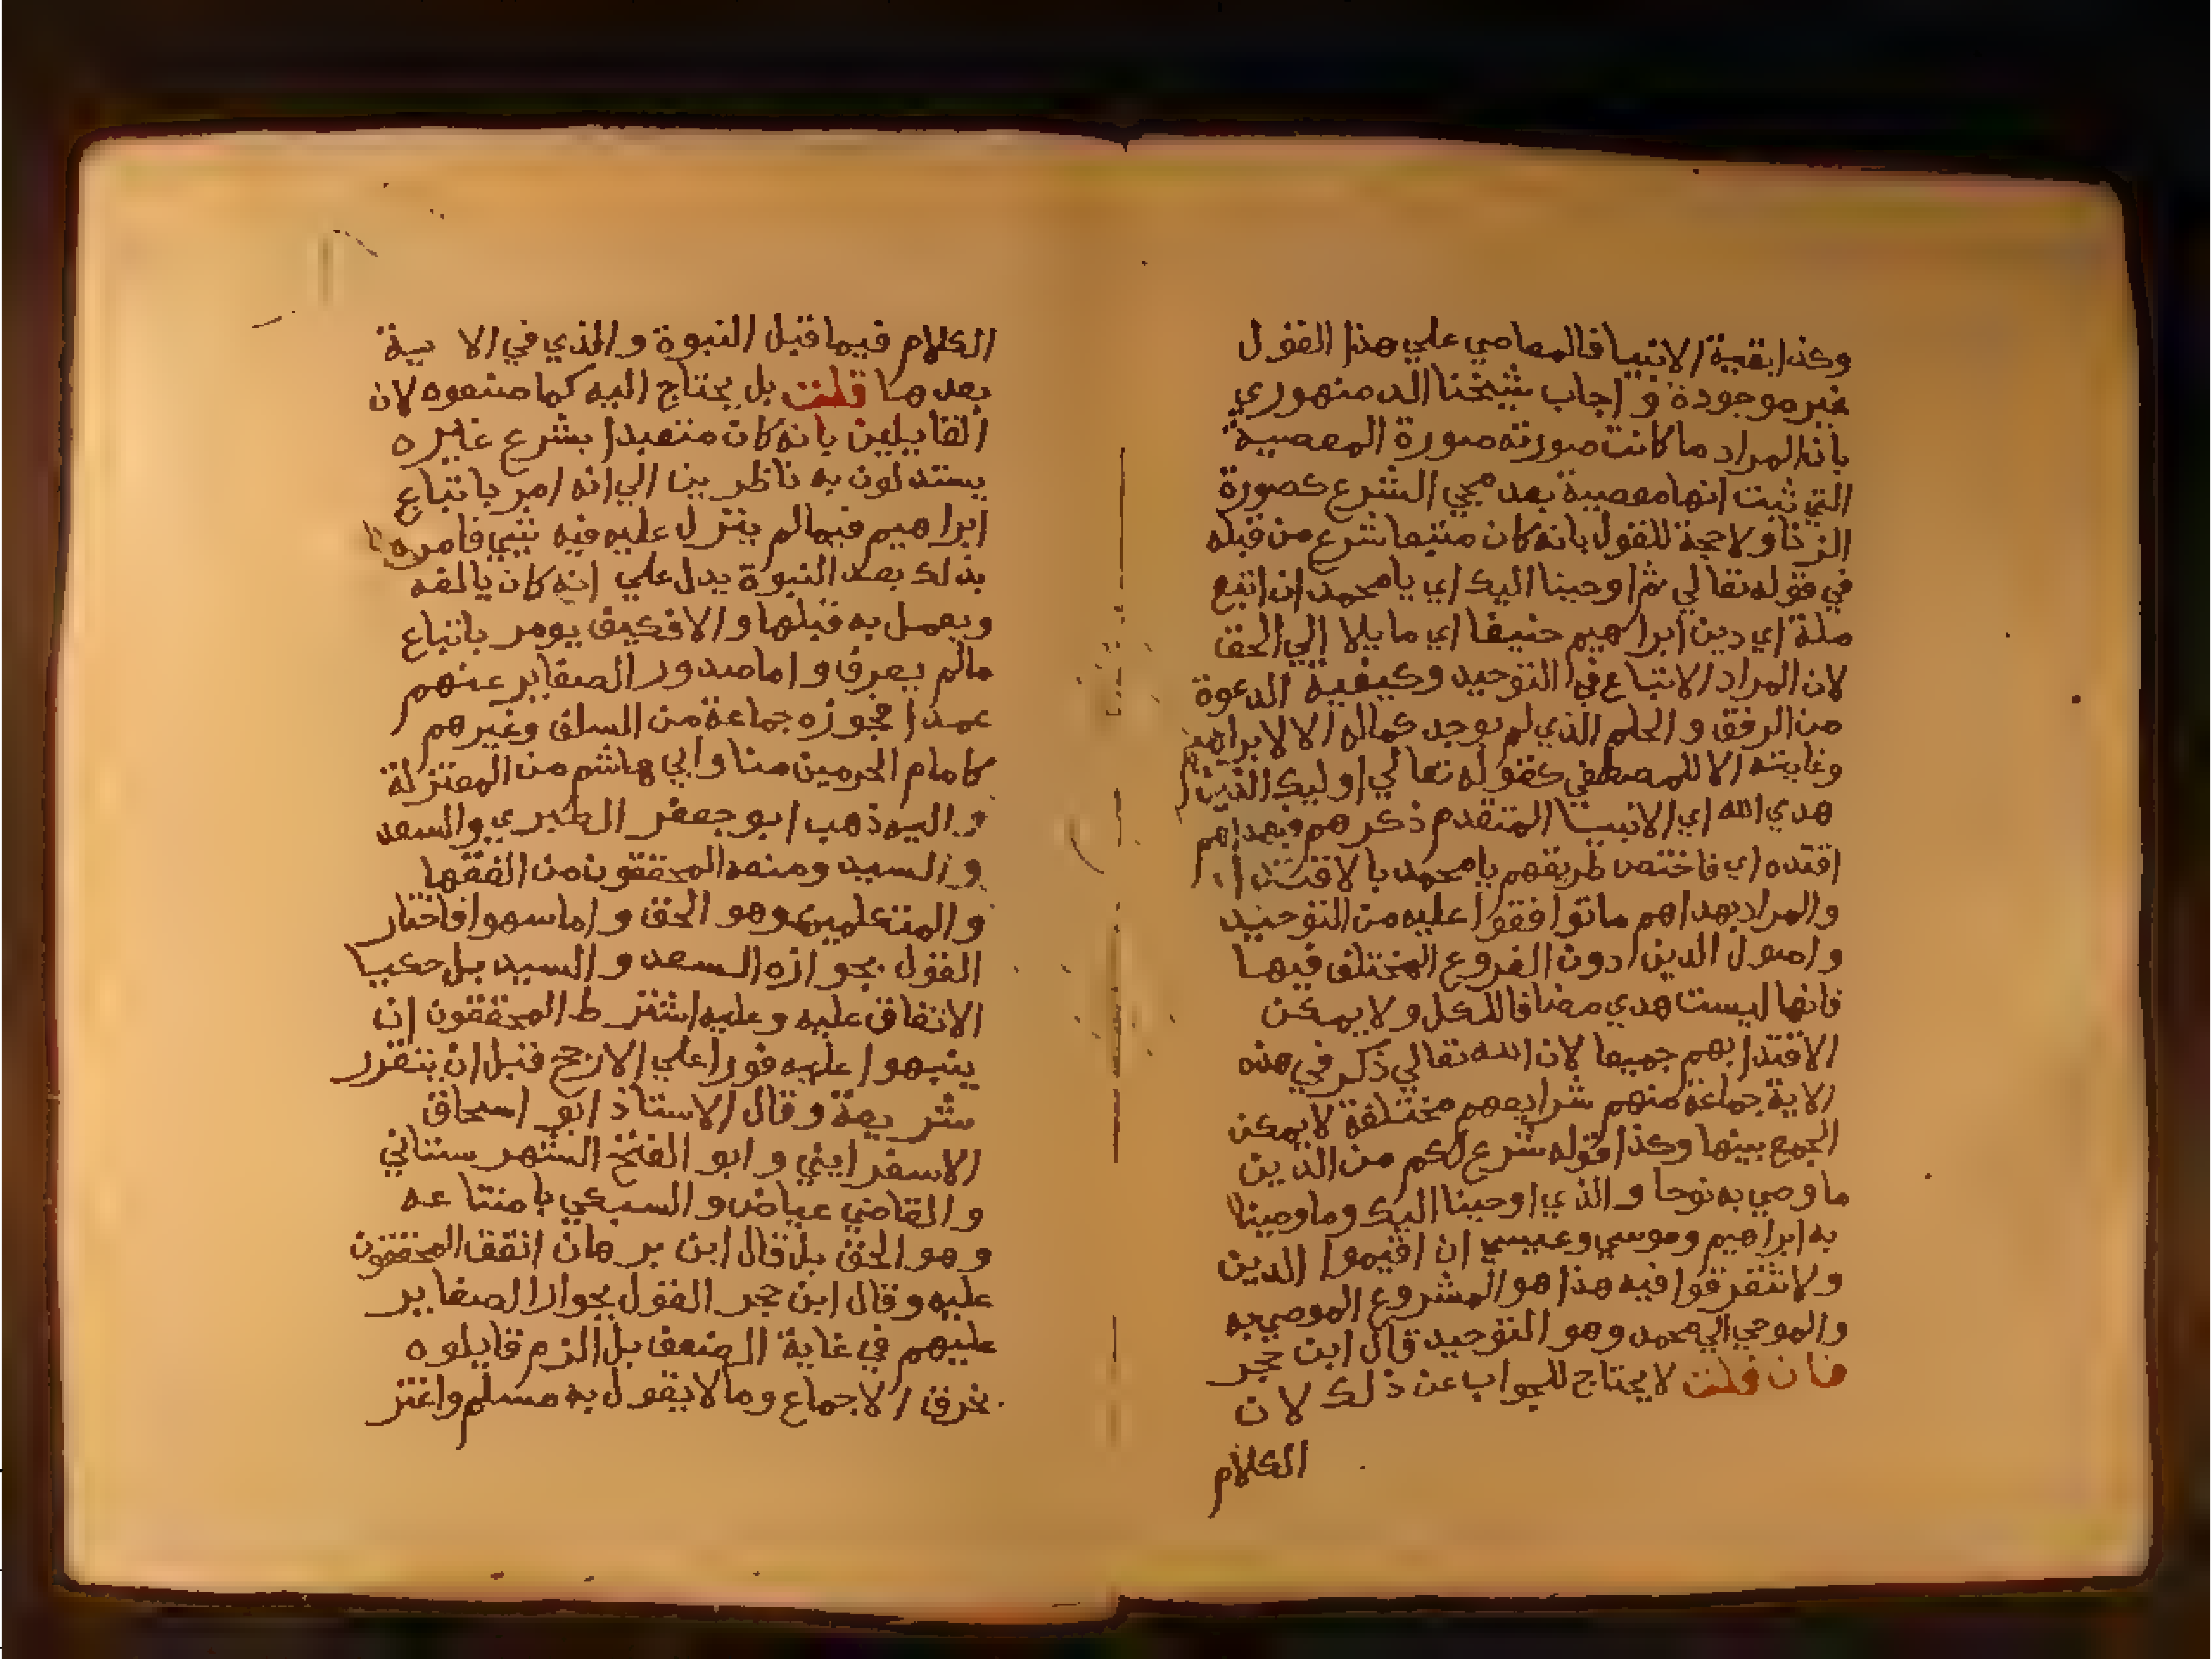 وكذا بقية الانبيا فالمعاصي علي هذا القول
غير موجودة و اجاب شيخنا الدمنهوري
بان المراد ما كانت صورته صورة المعصية
التي ثبت انها معصية بعد مجي الشرع كصورة
الزنا ولا حجة للقول بانه كان متبعا شرع من قبله
في قوله تعالي ثم اوحينا اليك اي يا محمد ان اتبع
ملة اي دين ابراهيم حنيفا اي مايلا الي الحق
لان المراد الاتباع في التوحيد وكيفية الدعوة
من الرفق و الحلم الذي لم يوجد كماله الا لابراهيم
وغايته الا للمصطفي كقوله تعالي اوليك الذين
هدي الله اي الانبيا المتقدم ذكرهم فبهداهم
اقتده اي فاختص طريقهم يا محمد بالاقتدا
والمراد بهداهم ما توافقوا عليه من التوحيد
و اصول الدين دون الفروع المختلف فيها
فانها ليست هدي مضافا للكل و لا يمكن
الاقتدا بهم جميعا لان الله تعالي ذكر في هذه
الاية جماعة منهم شرايعهم مختلفة لا يمكن
الجمع بينها وكذا قوله شرع لكم من الدين
ما وصي به نوحا و الذي اوحينا اليك وما وصينا
به ابراهيم وموسي وعيسي ان اقيموا الدين
ولا تتفرقوا فيه هذا هو المشروع الموصي به
والموحي الي محمد وهو التوحيد قال ابن حجر
فان قلت لا يحتاج للجواب عن ذلك لان
الكلام
الكلام فيما قبل النبوة و الذي في الاية
بعدها قلت بل يحتاج اليه كما صنعوه لان
القايلين بانه كان متعبدا بشرع غيره
يستدلون به ناظرين الي انه امر باتباع
ابراهيم فيما لم ينزل عليه فيه شي فامره
بذلك بعد النبوة يدل علي انه كان يالفه
ويعمل به قبلها و الا فكيف يومر باتباع
مالم يعرف و اما صدور الصغاير عنهم
عمدا فجوزه جماعة من السلف وغيرهم
كامام الحرمين منا وابي هاشم من المعتزلة
و اليه ذهب ابو جعفر الطبري والسعد
و السيد ومنعه المحققون من الفقها
و المتكلمين وهو الحق و اما سهوا فاختار
القول بجوازه السعد و السيد بل حكيا
الاتفاق عليه و عليه اشترط المحققون ان
ينبهوا عليه فورا علي الارجح قبل ان يتقرر
شريعة و قال الاستاذ ابو اسحاق
الاسفرايني و ابو الفتح الشهرستاني
و القاضي عياض و السبكي بامتناعه
و هو الحق بل قال ابن برهان اتفق المحققون
عليه و قال ابن حجر القول بجواز الصغاير
عليهم في غاية الضعف بل الزم قايلوه
بخرق الاجماع وما لا يقول به مسلم واغتر